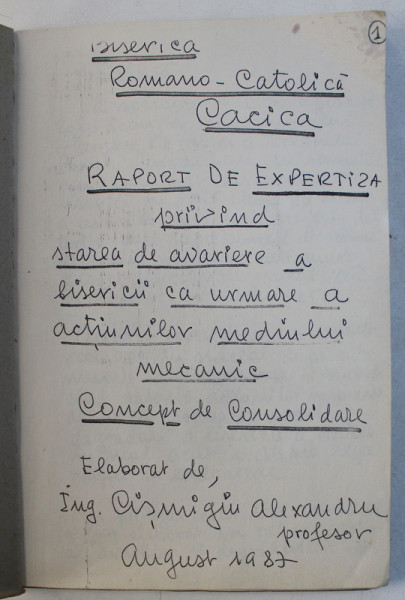 1
Biserica
Romano-Catolică
Cacica
RAPORT DE EXPERTIZA
privind
starea de avariere a
bisericii ca urmare a
acțiunilor mediului
mecanic
Concept de Consolidare
Elaborat de,
Ing. Cișmigiu Alexandru
profesor
August 1987